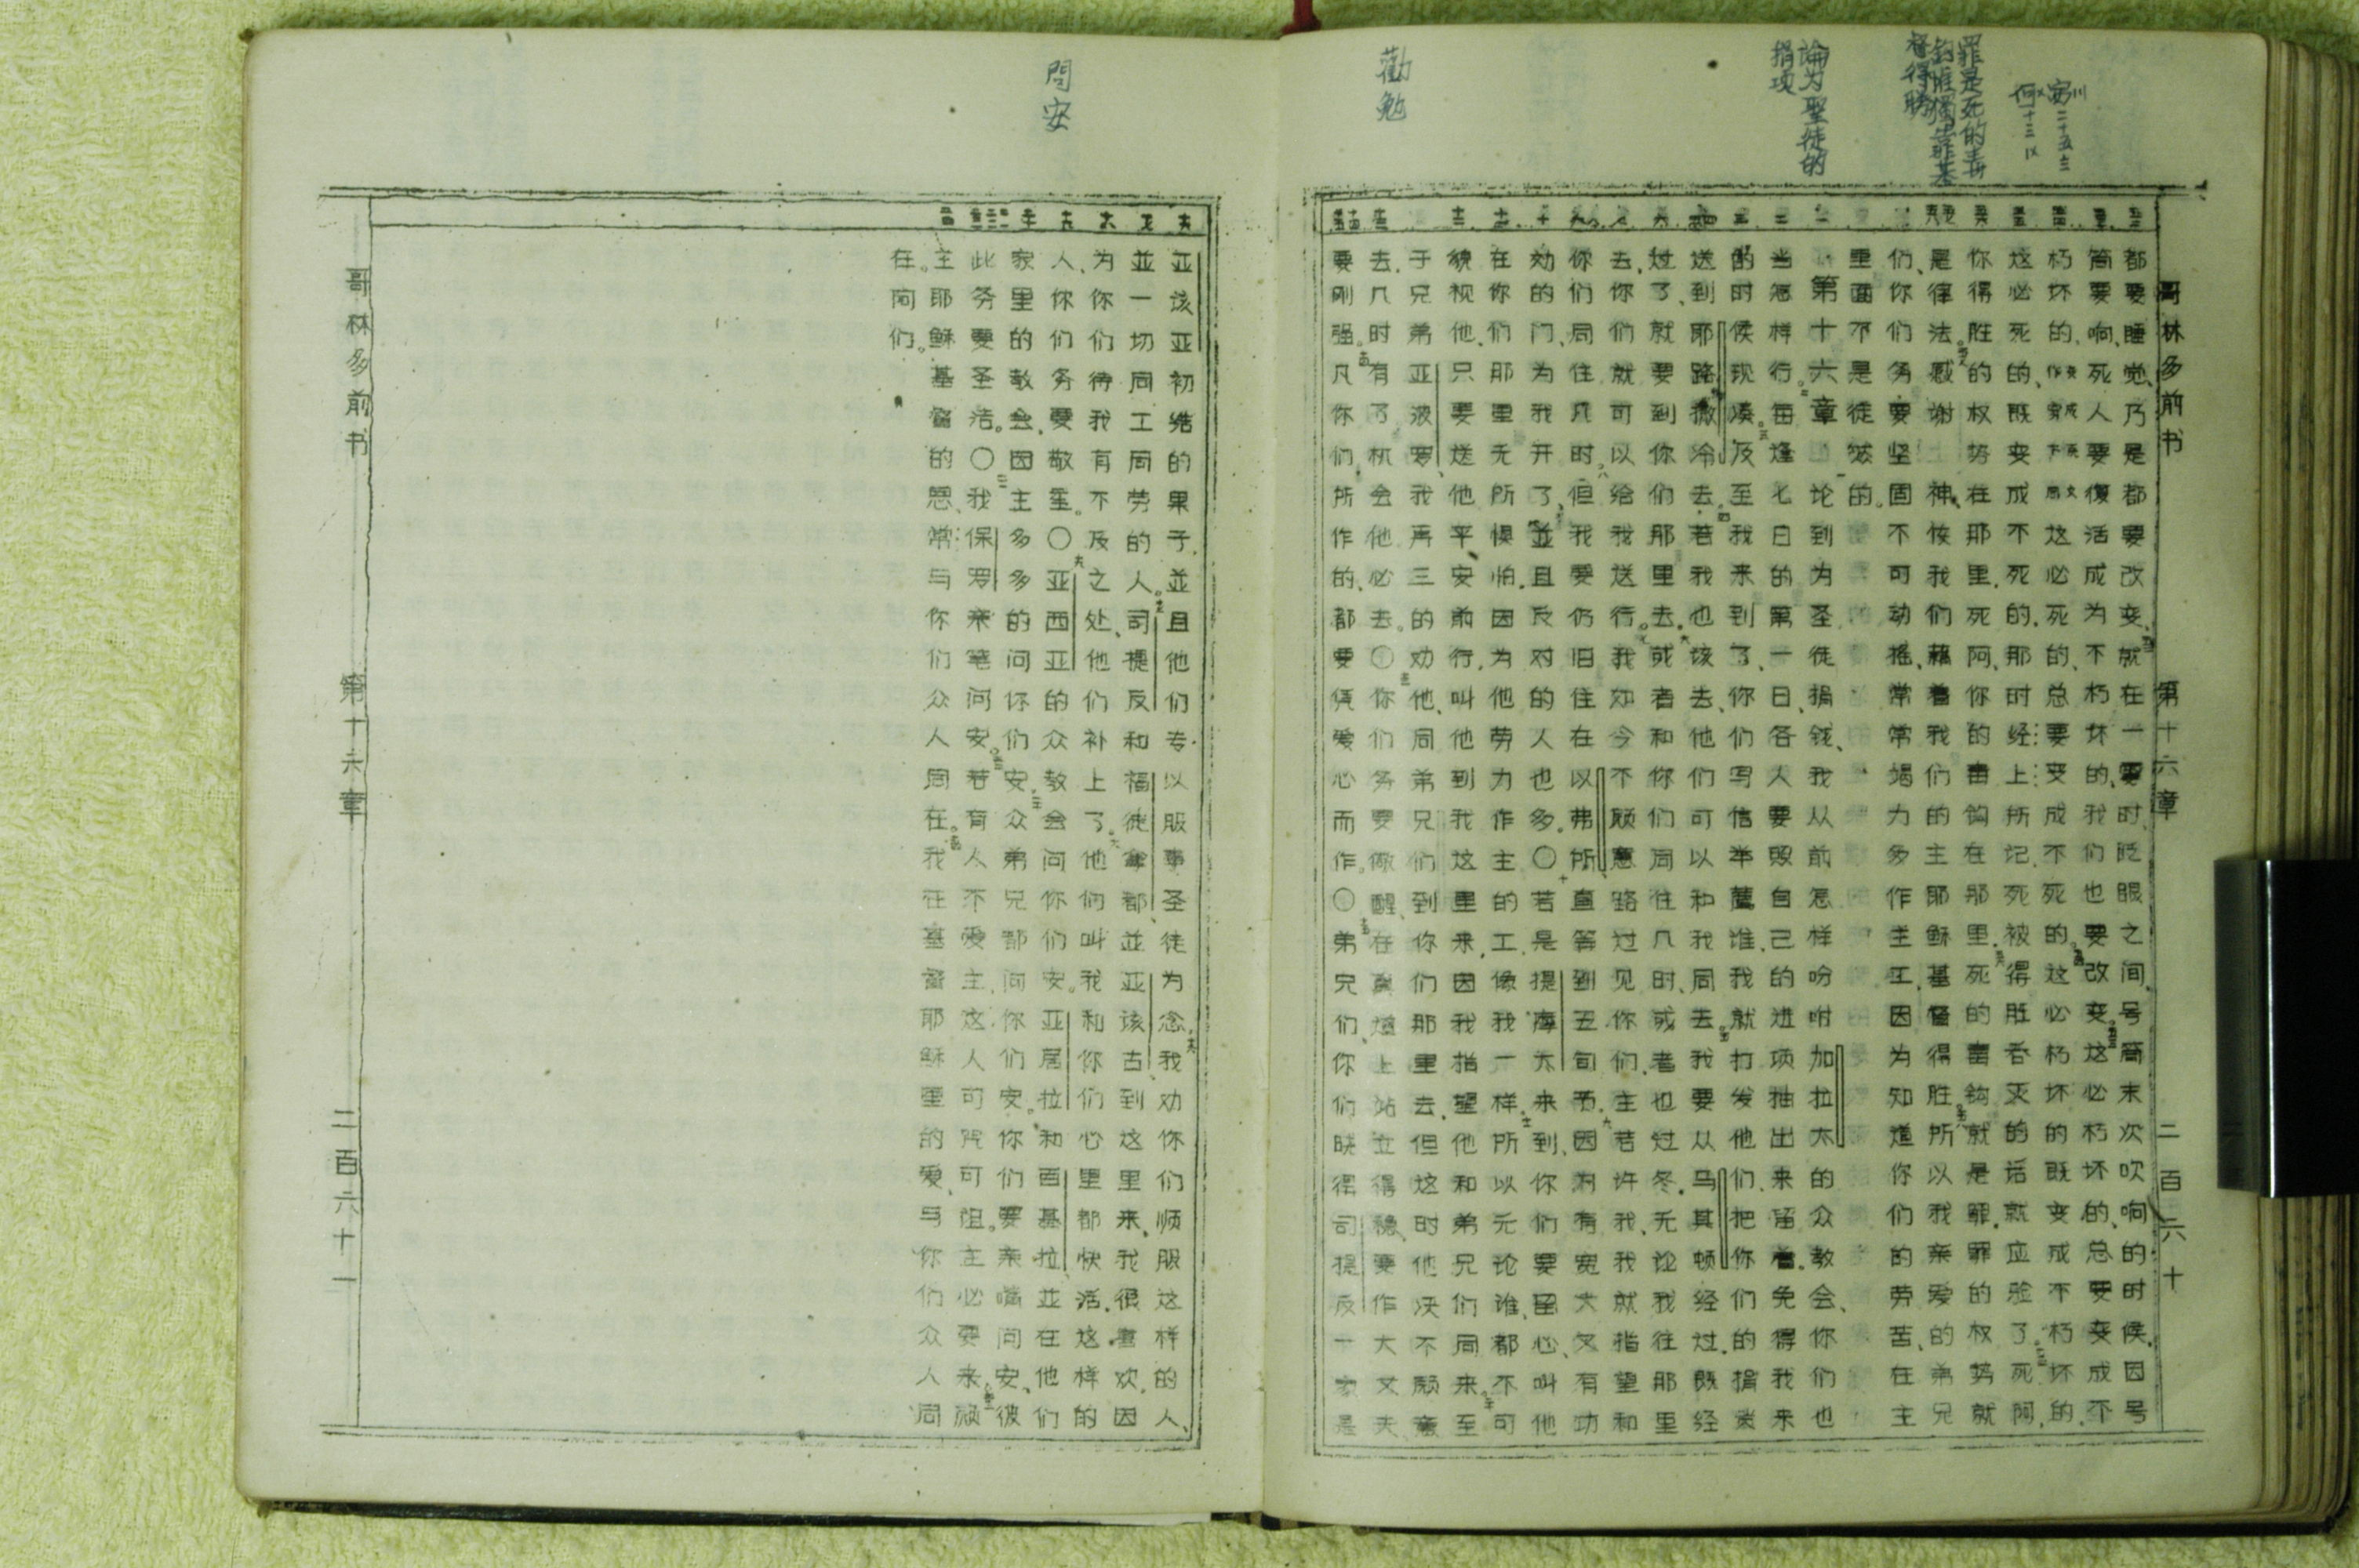 赛 二十五
罪是死的毒
鈎惟獨靠基
督得勝
論为聖徒的
捐项
勸勉
哥林多前书 第十六章 二百六十
都要睡觉、乃是都要改变、就在一霎时、眨眼之间、号筒末次吹响的时候、因号
筒要响、死人要復活成为不朽坏的、我们也要改变。这必朽坏的、总要变成不
朽坏的、变成原文作穿下同这必死的、总要变成不死的。这必朽坏的既变成不朽坏的、
这必死的、既变成不死的、那时经上所记、死被得胜吞灭的话就应验了。死阿、
你得胜的权势在那里、死阿、你的毒钩在那里。死的毒钩就是罪、罪的权势就
是律法。感谢 神、使我们藉着我们的主耶稣基督得胜。所以我亲爱的弟兄
们、你们务要坚固不可动摇、常常竭力多作主工、因为知道你们的劳苦、在主
里面不是徒然的。
第十六章 论到为圣徒捐钱、我从前怎样吩咐加拉太的众教会、你们也
当怎样行。每逢七日的第一日、各人要照自己的进项抽出来留着。免得我来
的时候现凑。及至我来到了、你们写信举荐谁、我就打发他们、把你们的捐资
送到耶路撒冷去。若我也该去、他们可以和我同去。我要从马其顿经过、既经
过了、就要到你们那里去。或者和你们同住几时、或者也过冬。无论我往那里
去、你们就可以给我送行。我如今不愿意路过见你们、主若许我、我就指望和
你们同住几时。但我要仍旧住在以弗所、直等到五旬节、因为有宽大又有功
効的门、为我开了、並且反对的人也多。〇若是提摩太来到、你们要留心、叫他
在你们那里无所惧怕、因为他劳力作主的工、像我一样、所以无论谁、都不可
藐视他、只要送他平安前行、叫他到我这里来、因我指望他和弟兄们同来。至
于兄弟亚波罗、我再三的劝他、同弟兄们到你们那里去、但这时他决不愿意
去、几时有了机会他必去。〇你们务要儆醒、在真道上站立得稳、要作大丈夫
要刚强。凡你们所作的、都要凭爱心而作。〇弟兄们、你们晓得司提反一家是
問安
亚该亚初结的果子、並且他们专以服事圣徒为念、我劝你们顺服这样的人、
並一切同工同劳的人。司提反和福徒拿都、並亚该古到这里来、我很喜欢、因
为你们待我有不及之处、他们补上了。他们叫我和你们心里都快活、这样的
人、你们务要敬重。〇亚西亚的众教会问你们安。亚居拉和百基拉、並在他们
家里的教会、因主多多的问你们安。众弟兄都问你们安。你们要亲嘴问安、彼
此务要圣洁。〇我保罗亲笔问安。若有人不爱主、这人可咒可诅。主必要来、愿
主耶稣基督的恩、常与你们众人同在。我在基督耶稣里的爱、与你们众人同
在。阿们。
哥林多前书 第十六章 二百六十一